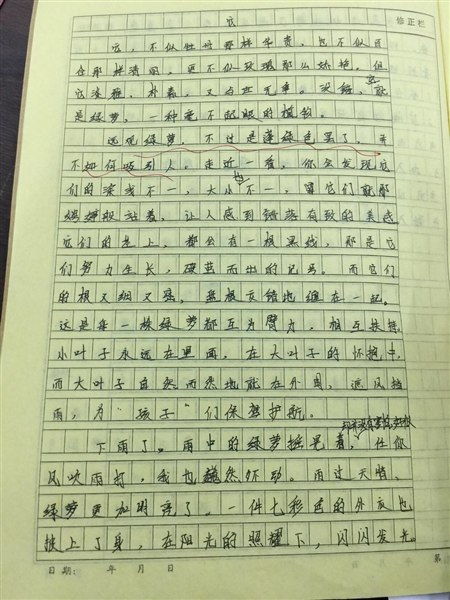 它
修正栏
它，不似牡丹那样华贵，也不似百
合那样清丽，更不似玫瑰那么娇艳，但
它淡雅，朴素，又与世无争。没错，就
是绿萝，一种毫不起眼的植物。
远观绿萝，不过是蓬绿色罢了，并
不如何吸引人。走近一看，你会发现它
们的深浅不一，大小也不一，当它们就那
站着，让人感到错落有致的美感
它们的茎上，都会有一根黑线，那是它
们努力生长，破茧而出的记号。而它们
的根又细又强，盘根交错地缠在一起。
这是每一株绿萝都互为臂力，相互扶持
小叶子永远在里面，在大叶子的怀抱中，
而大叶子自然而然地就在外围，遮风挡
雨，为“孩子”们保驾护航。
下雨了。雨中的绿萝摇晃着，任你
风吹雨打，我也巍然不动。雨过天晴，
绿萝更加明亮了。一件七彩色的外衣也
披上了身，在阳光的照耀下，闪闪发光。
日期： 年 月 日
第